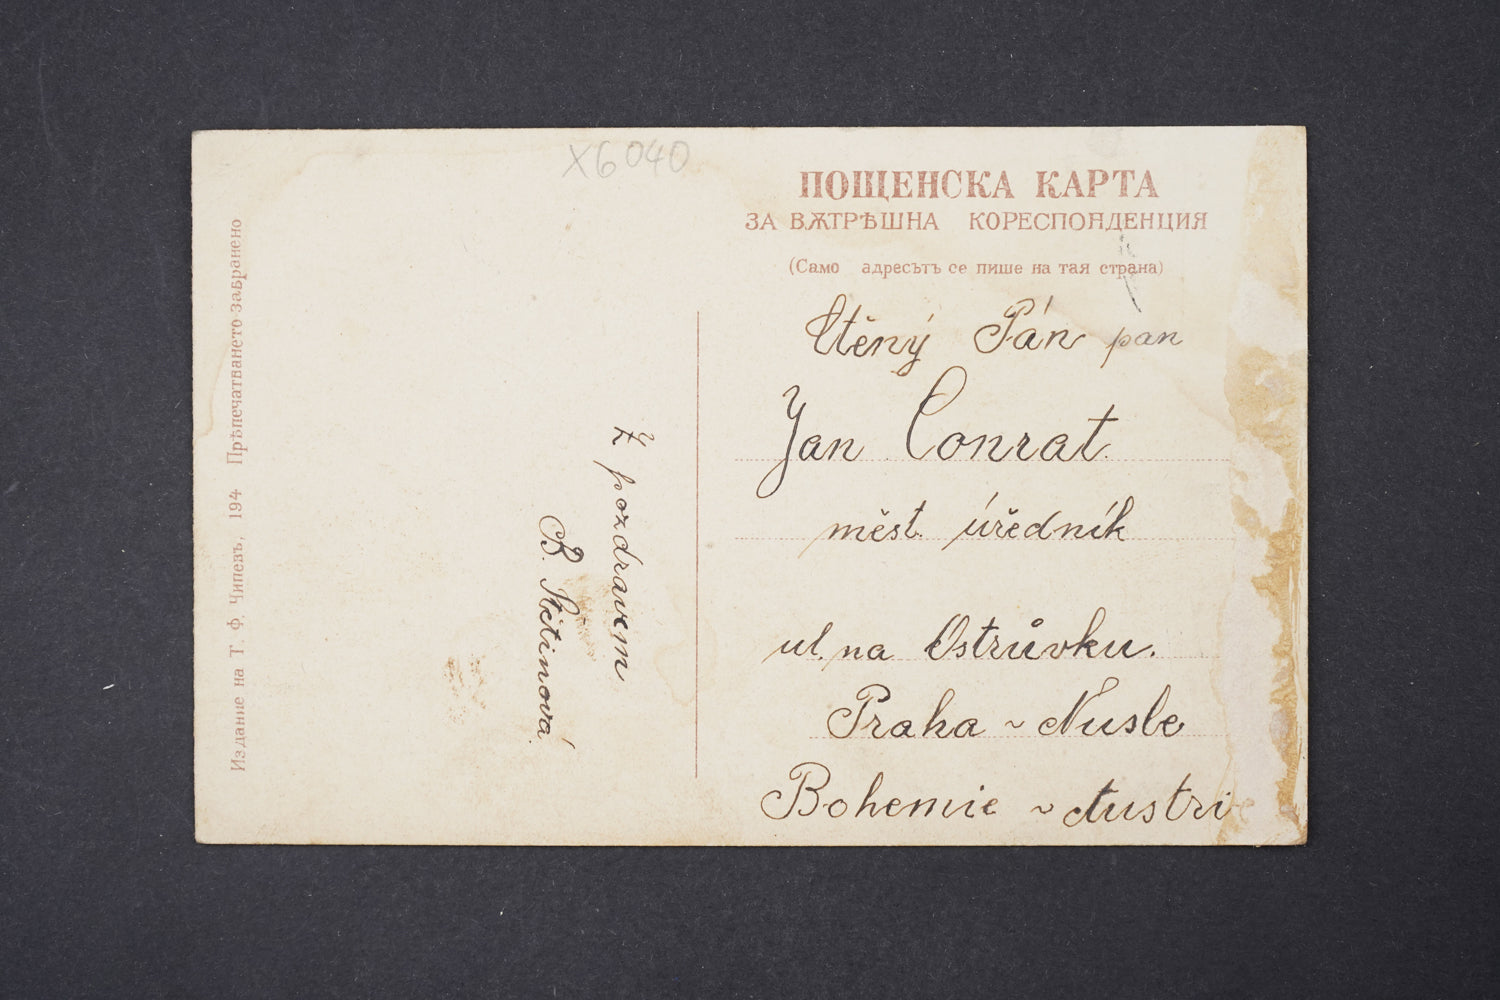 X6040
ПОЩЕНСКА КАРТА
ЗА ВѪТРѢШНА КОРЕСПОНДЕНЦИЯ
(Само адресътъ се пише на тая страна)
Ctěný Pán pan
Jan Conrat
měst. úředník
ul. na Ostrůvku.
Praha ~ Nusle
Bohemie ~ Austrie
Z pozdravem
B. Štětinová
Издание на Т. Ф. Чипевъ, 194 Прѣпечатването забранено